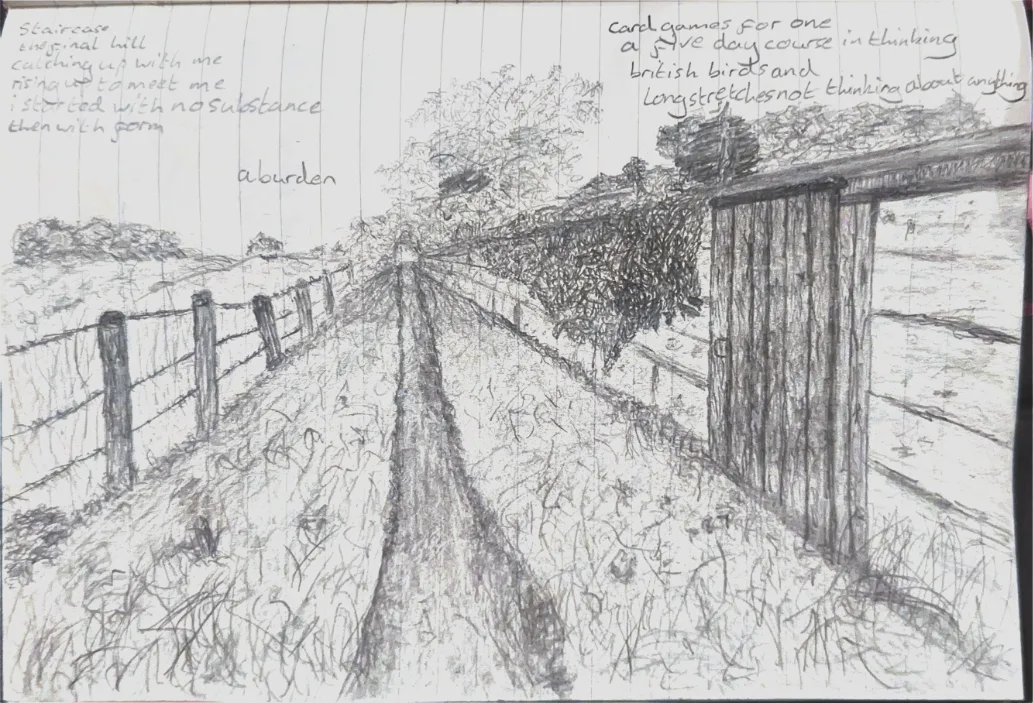 Staircase
the final hill
catching up with me
rising up to meet me
i started with no substance
then with form
a burden
card games for one
a five day course in thinking
british birds and
long stretches not thinking about anything